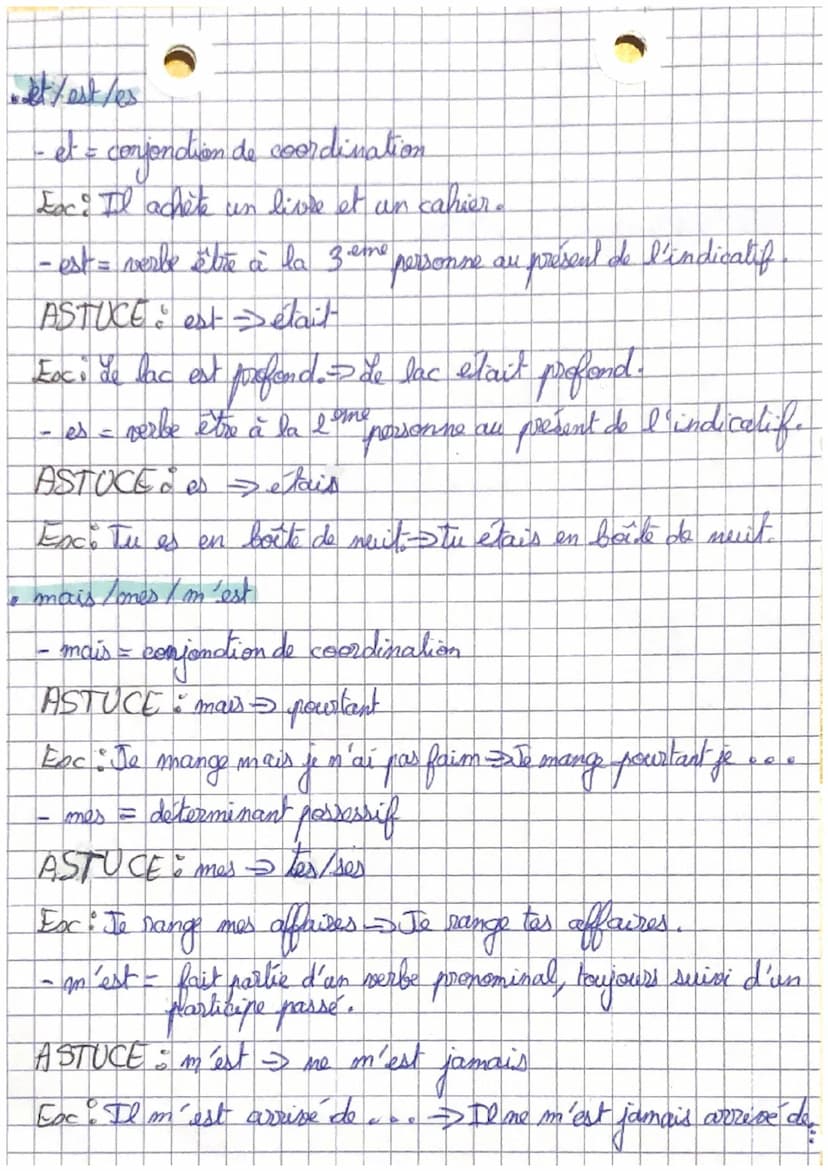 . et/est/es
- et = conjonction de coordination
Ex: Il achète un livre et un cahier.
- est = verbe être à la 3eme personne au présent de l'indicatif.
ASTUCE : est => était
Ex: Le lac est profond. => Le lac était profond.
- es = verbe être à la 2eme personne au présent de l'indicatif.
ASTUCE : es => étais
Ex: Tu es en boîte de nuit. => Tu étais en boîte de nuit.
. mais/mes/m'est
- mais = conjonction de coordination
ASTUCE : mais => pourtant
Ex : Je mange mais je n'ai pas faim => Je mange pourtant je ...
- mes = déterminant possessif
ASTUCE : mes => tes/ses
Ex : Je range mes affaires => Je range tes affaires.
- m'est = fait partie d'un verbe pronominal, toujours suivi d'un
participe passé.
ASTUCE : m'est => ne m'est jamais
Ex : Il m'est arrivé de ... => Il ne m'est jamais arrivé de...